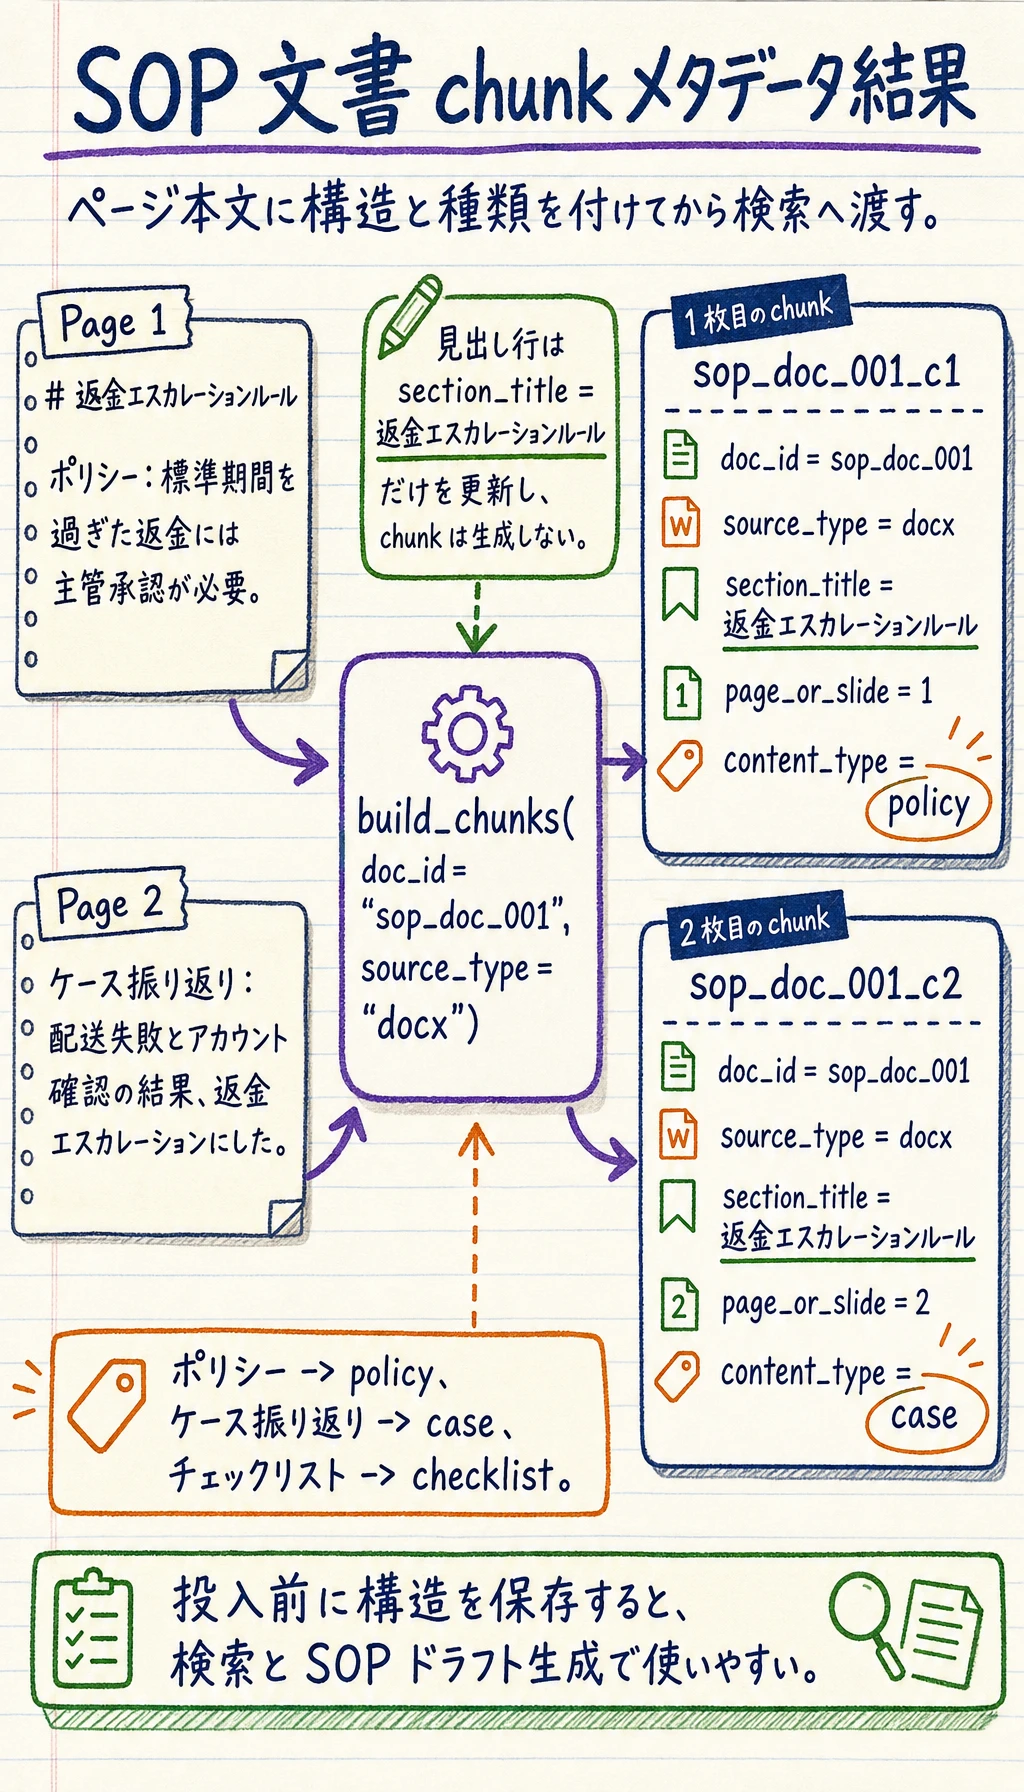 SOP 文書 chunk メタデータ結果
ページ本文に構造と種類を付けてから検索へ渡す。
Page 1
# 返金エスカレーションルール
ポリシー：標準期間を
過ぎた返金には
主管承認が必要。
見出し行は
section_title =
返金エスカレーションルール
だけを更新し、
chunk は生成しない。
1 枚目の chunk
sop_doc_001_c1
doc_id = sop_doc_001
W
source_type = docx
section_title =
返金エスカレーションルール
1
page_or_slide = 1
content_type =
policy
build_chunks(
doc_id =
“sop_doc_001”,
source_type =
“docx”)
Page 2
ケース振り返り：
配送失敗とアカウント
確認の結果、返金
エスカレーションにした。
2 枚目の chunk
sop_doc_001_c2
doc_id = sop_doc_001
W
source_type = docx
section_title =
返金エスカレーションルール
2
page_or_slide = 2
content_type =
case
ポリシー -> policy、
ケース振り返り -> case、
チェックリスト -> checklist。
投入前に構造を保存すると、
検索と SOP ドラフト生成で使いやすい。